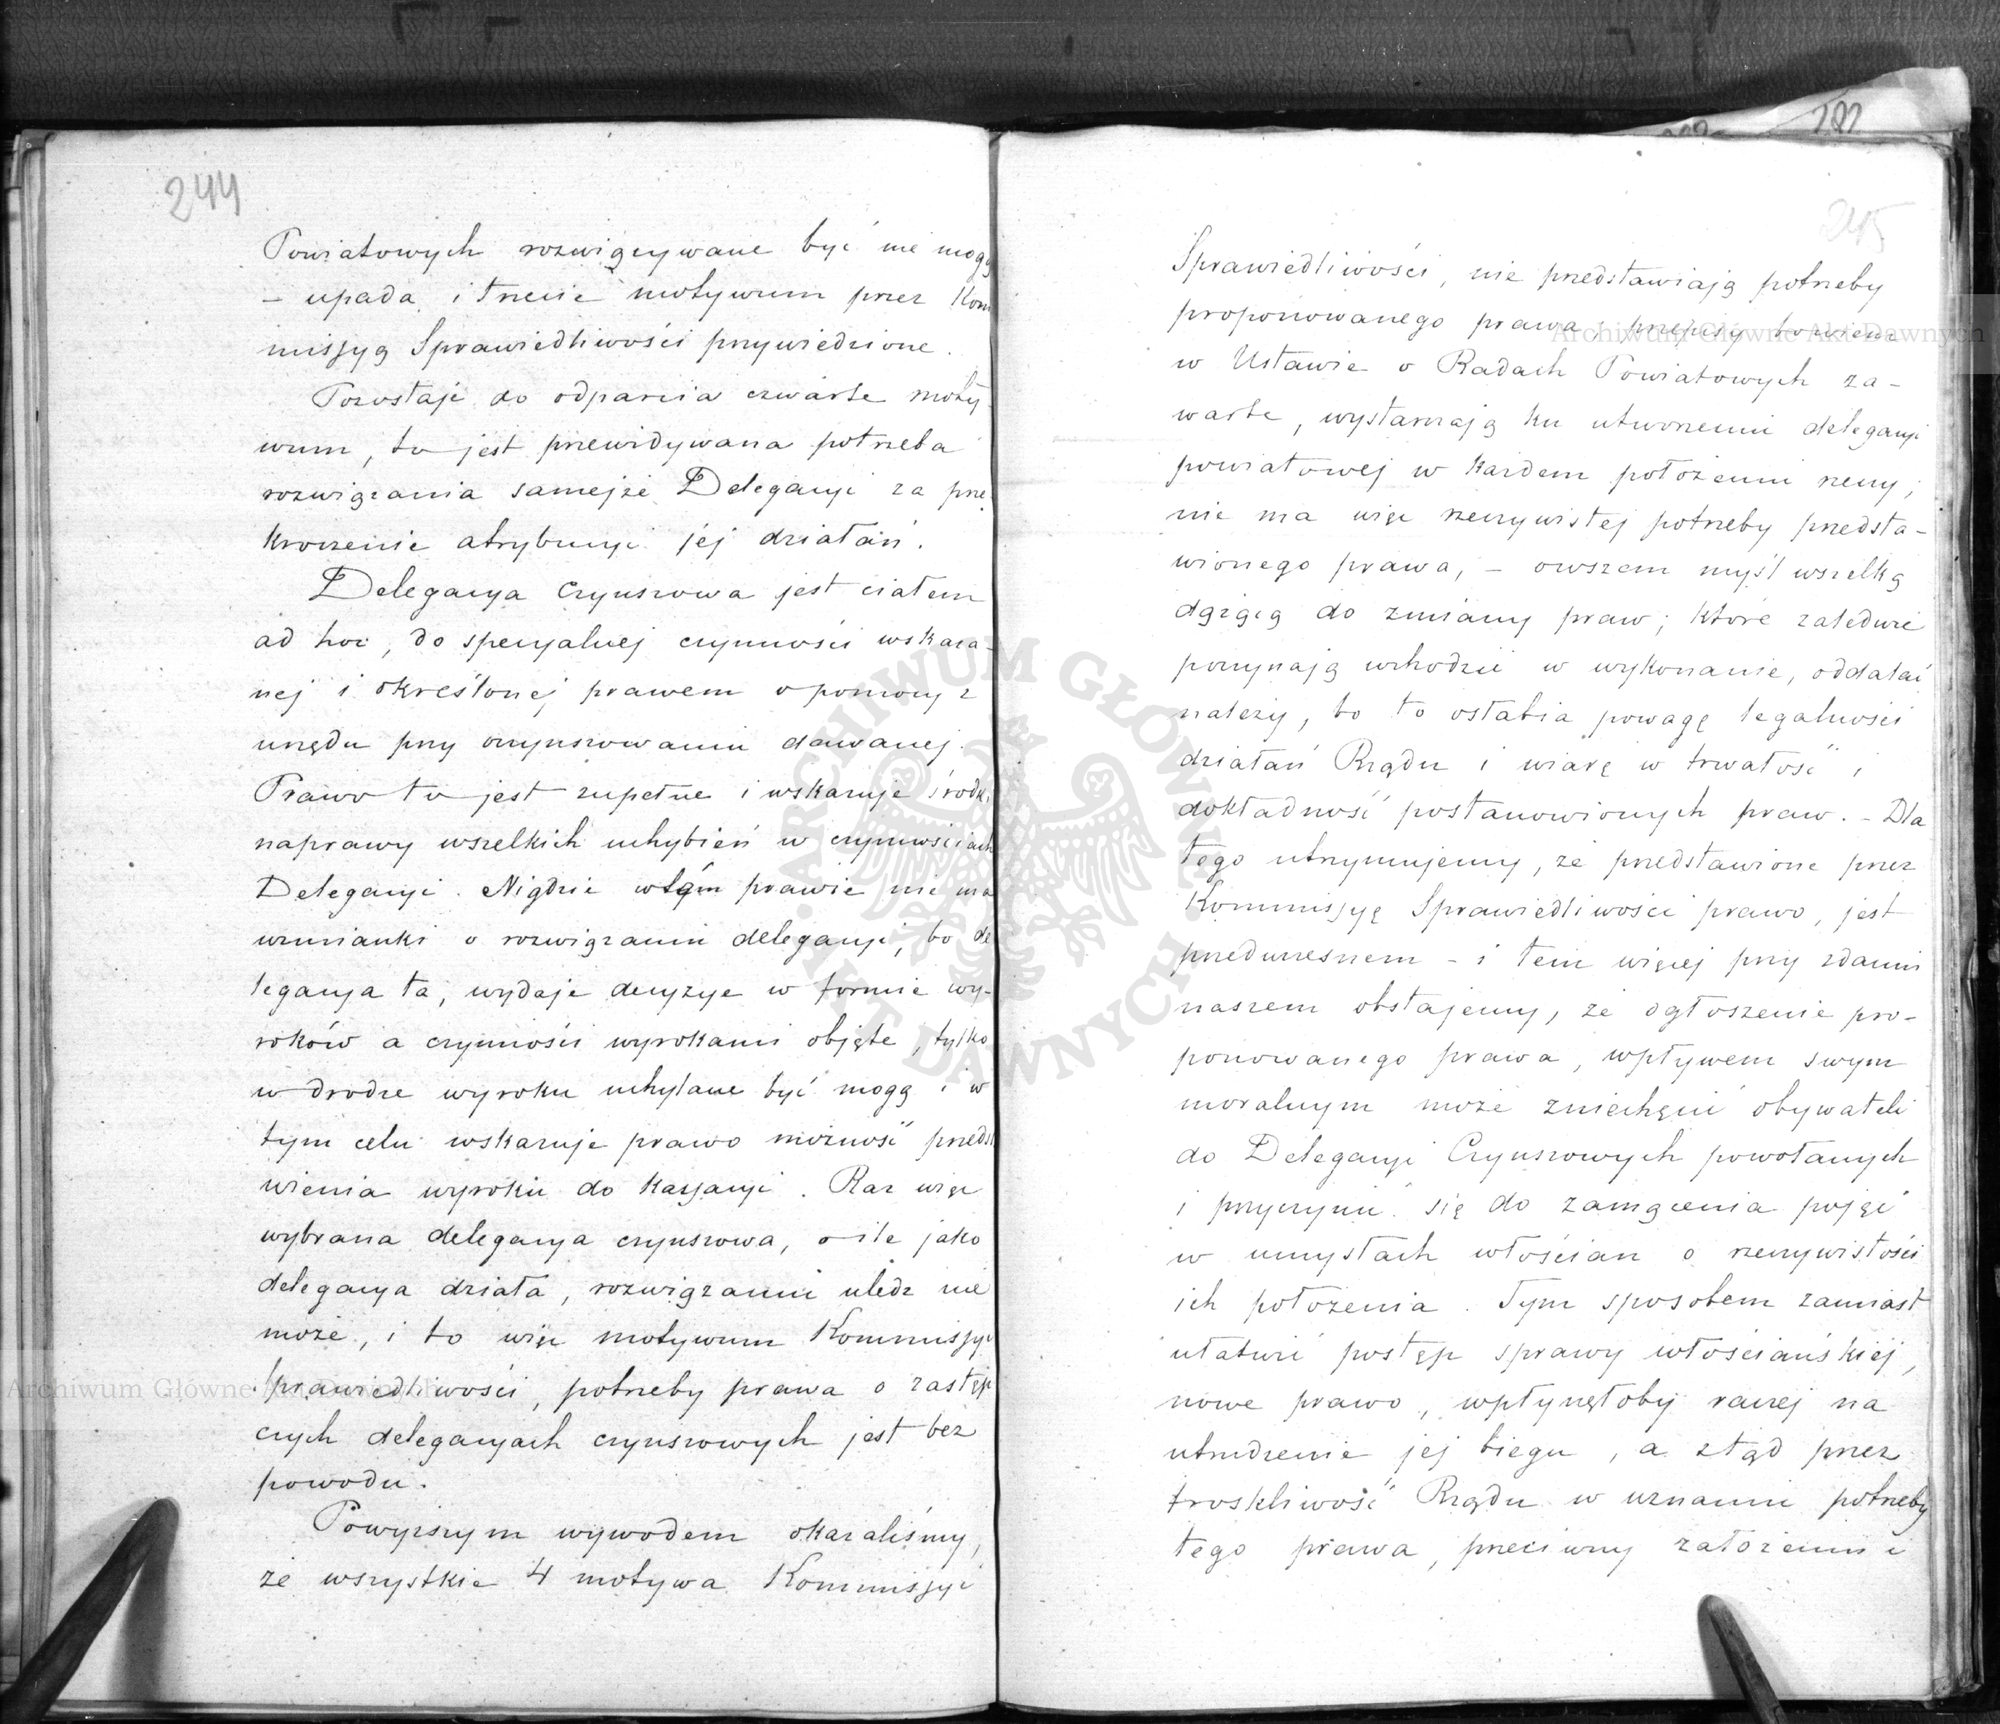 244
Powiatowych rozwięzywane być nie mogą
– upada i trzecie motywum przez Kom
missyą Sprawiedliwości przywiedzione.
Pozostaje do odparcia czwarte moty-
wum, to jest przewidywana potrzeba
rozwięzania samejże Delegacyi za prze
kroczenie atrybucyi jéj działań.
Delegacya Czynszowa jest ciałem
ad hoc, do specyalnej czynności wskaza-
nej i określonej prawem o pomocy z
urzędu przy oczynszowaniu dawanej.
Prawo to jest zupełne i wskazuje środki
naprawy wszelkich uchybień w czynnościach
Delegacyi. Nigdzie w tém prawie nie ma
wzmianki o rozwięzaniu delegacyi, bo de
legacya ta, wydaje decyzye w formie wy-
roków a czynności wyrokami objęte, tylko
w drodze wyroku uchylane być mogą i w
tym celu wskazuje prawo możność przedst
wienia wyroku do Kassacyi. Raz więc
wybrana delegacya czynszowa, o ile jako
delegacya działa, rozwięzaniu uledz nie
może, i to więc motywum Kommissyi
Sprawiedliwości, potrzeby prawa o zastęp
czych delegacyach czynszowych jest bez
powodu.
Powyższym wywodem okazaliśmy,
że wszystkie 4 motywa Kommissyi
202
245
Sprawiedliwości, nie przedstawiają potrzeby
proponowanego prawa; przepisy bowiem
w Ustawie o Radach Powiatowych za-
warte, wystarczają ku utworzeniu delegacyi
powiatowej w każdem położeniu rzeczy;
nie ma więc rzeczywistej potrzeby przedsta-
wionego prawa, – owszem myśl wszelką
dążącą do zmiany praw; które zaledwie
poczynają wchodzić w wykonanie, oddalać
należy, bo to osłabia powagę legalności
działań Rządu i wiarę w trwałość i
dokładność postanowionych praw. – Dla
tego utrzymujemy, że przedstawione przez
Kommissyę Sprawiedliwości prawo, jest
przedwczesnem – i tem więcej przy zdaniu
naszem obstajemy, że ogłoszenie pro-
ponowanego prawa, wpływem swym
moralnym może zniechęcić obywateli
do Delegacyi Czynszowych powołanych
i przyczynić się do zamącenia pojęć
w umysłach włościan o rzeczywistości
ich położenia. Tym sposobem zamiast
ułatwić postęp sprawy włościańskiej,
nowe prawo, wpłynęłoby raczej na
utrudzenie jej biegu, a ztąd przez
troskliwość Rządu w uznaniu potrzeby
tego prawa, przeciwny założeniu
Archiwum Główne Akt Dawnych
Archiwum Główne Akt Dawnych
ARCHIWUM GŁÓWNE AKT DAWNYCH